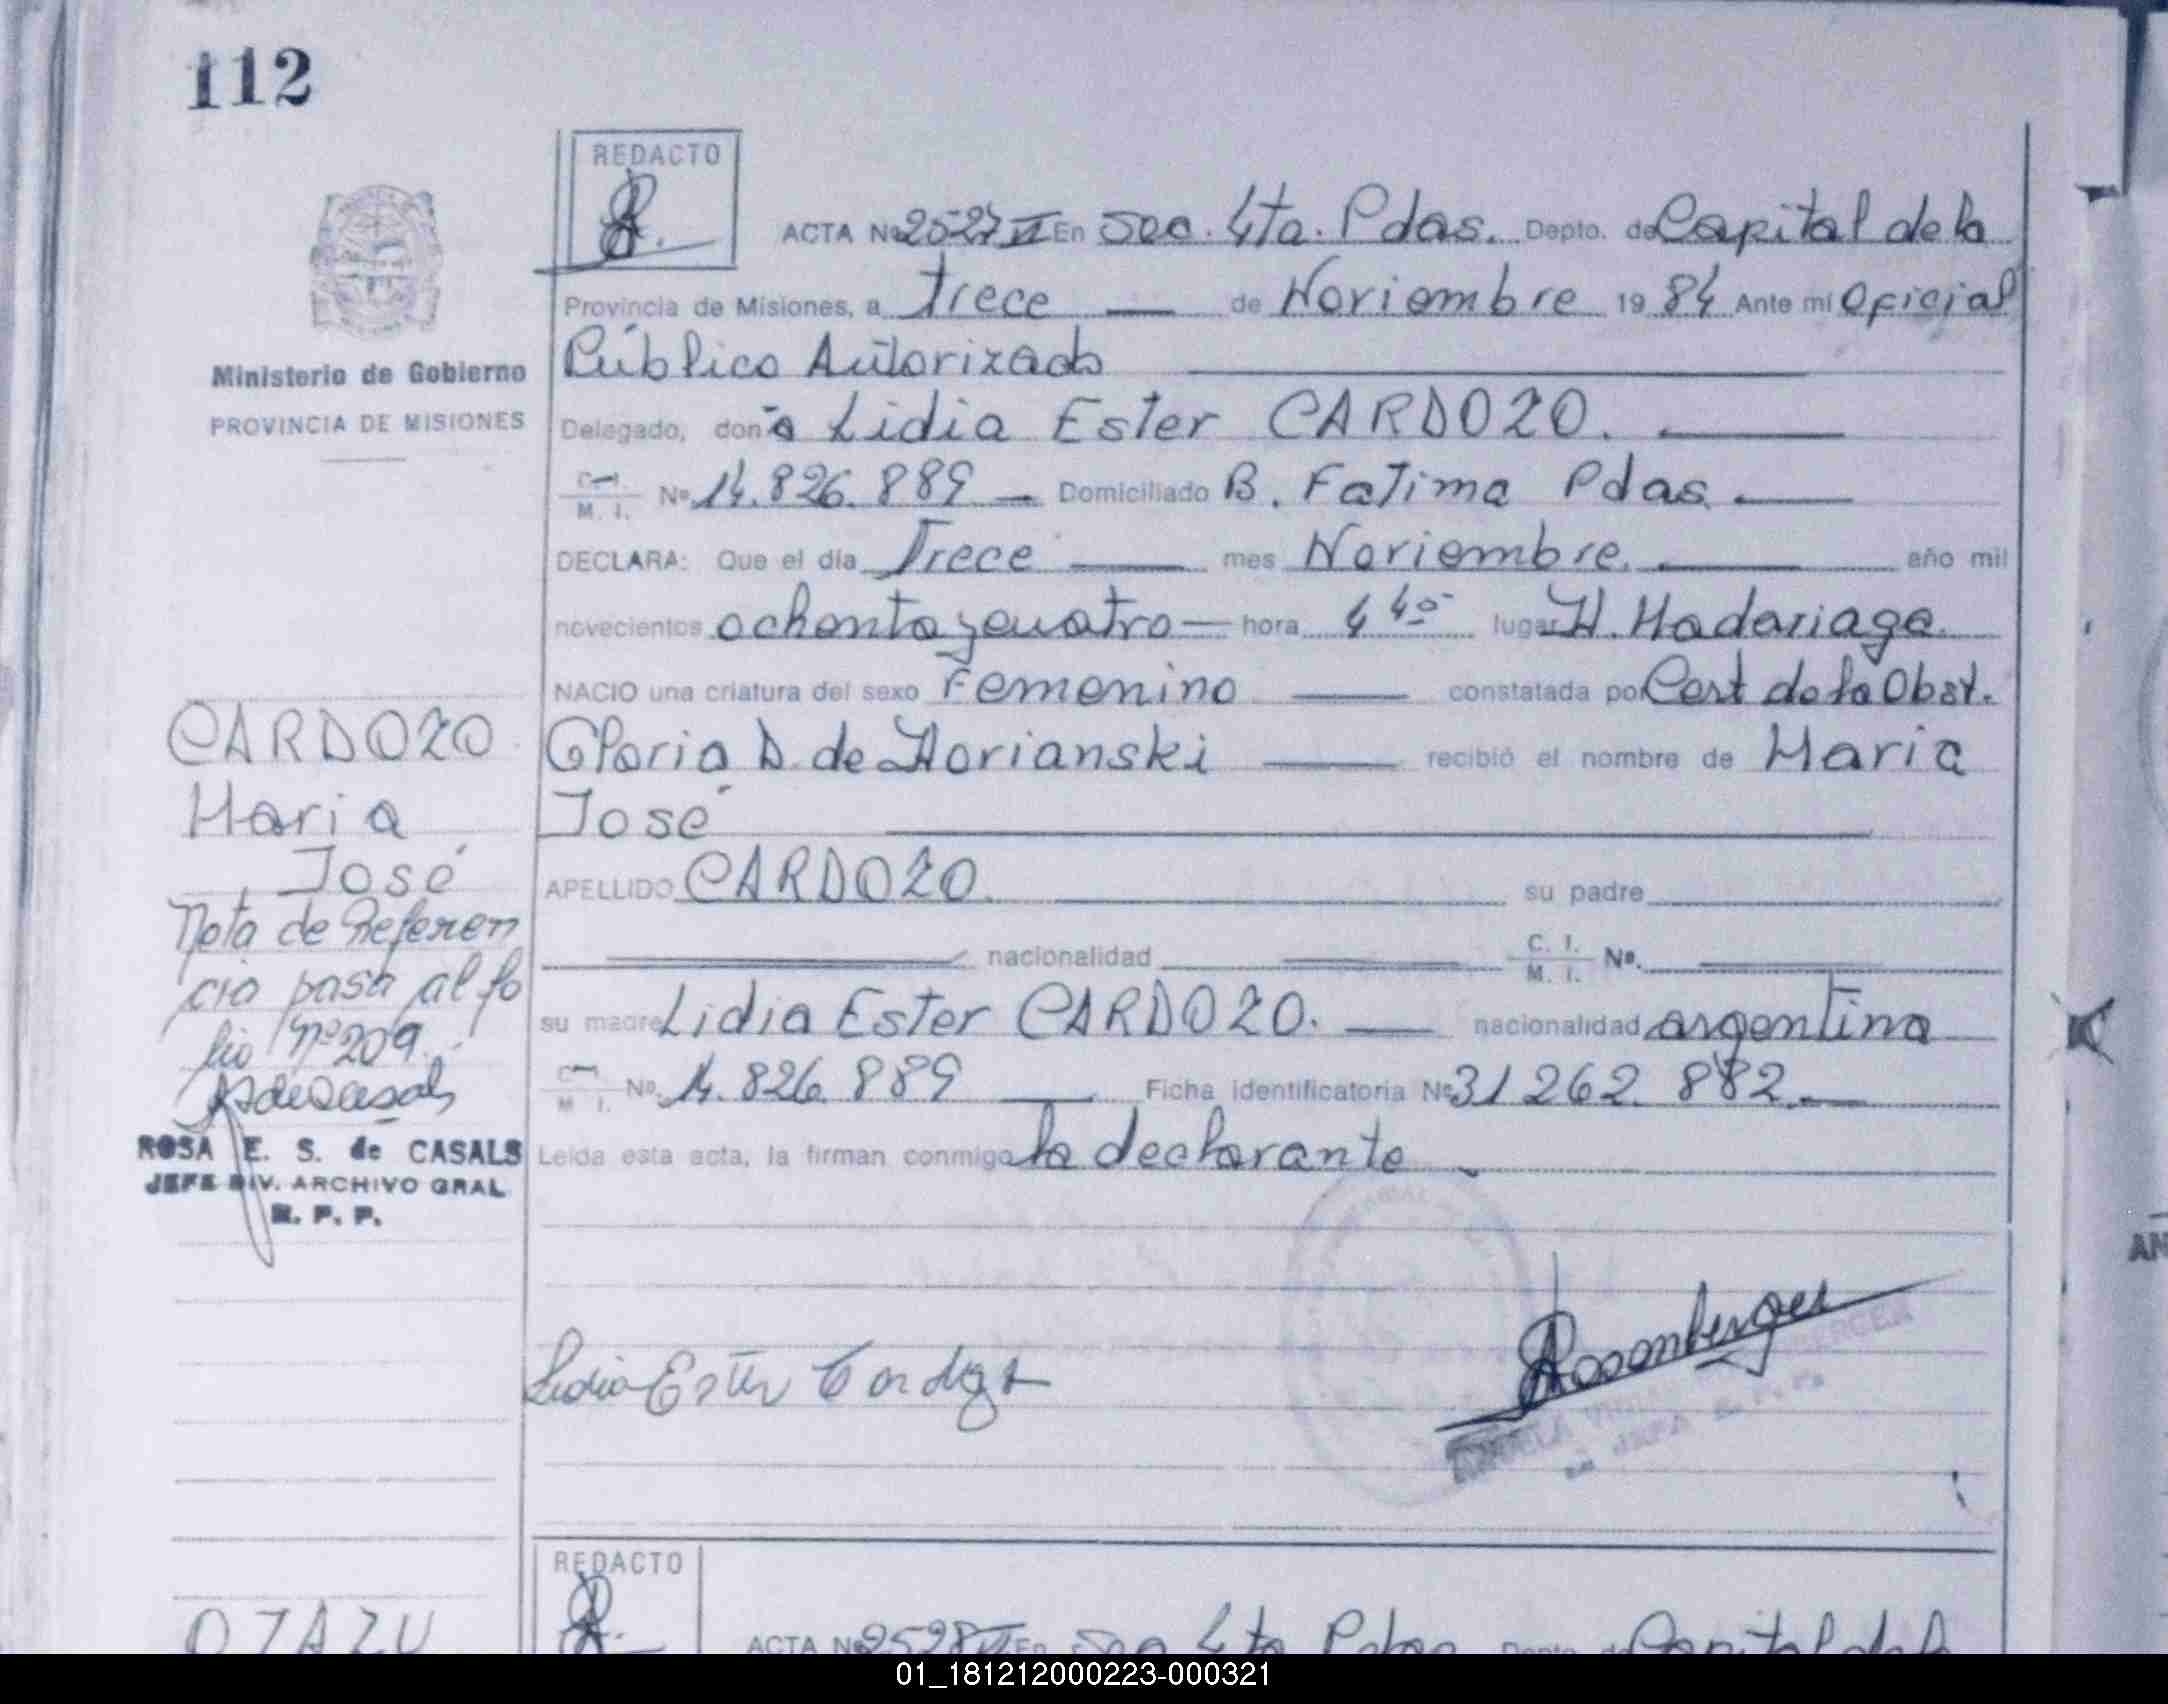 112
REDACTO
ACTA Nº 2527 II En Sec. 4ta. Pdas. Depto. de Capital de la
Provincia de Misiones, a Trece de Noviembre 19 84 Ante mi Oficial
Público Autorizado
Ministerio de Gobierno
PROVINCIA DE MISIONES
Delegado, doña Lidia Ester CARDOZO.
C. I.
M. I.
Nº 14.826.889 Domiciliado B. Fatima Pdas.
DECLARA: Que el día Trece mes Noviembre. año mil
novecientos ochenta y cuatro hora 4 40 lugar H. Madariaga.
NACIO una criatura del sexo Femenino constatada por Cert de la Obst.
Gloria D. de Horianski recibió el nombre de Maria
José
CARDOZO
Maria
José
Nota de Referen
cia pasa al fo
lio Nº 209.
ROSA E. S. de CASALS
JEFE DIV. ARCHIVO GRAL
R. P. P.
APELLIDO CARDOZO. su padre
nacionalidad C. I.
M. I. Nº.
su madre Lidia Ester CARDOZO. nacionalidad argentina
C. I.
M. I.
Nº. 14.826.889 Ficha identificatoria Nº 31 262.882.
Leida esta acta, la firman conmigo la declarante
Lidia Ester Cardozo
Rosenberger
JEFA R. P. P.
REDACTO
OTAZU
ACTA Nº 2528 II En Sec 4ta Pdas. Depto. de Capital de la
AN
01_181212000223-000321